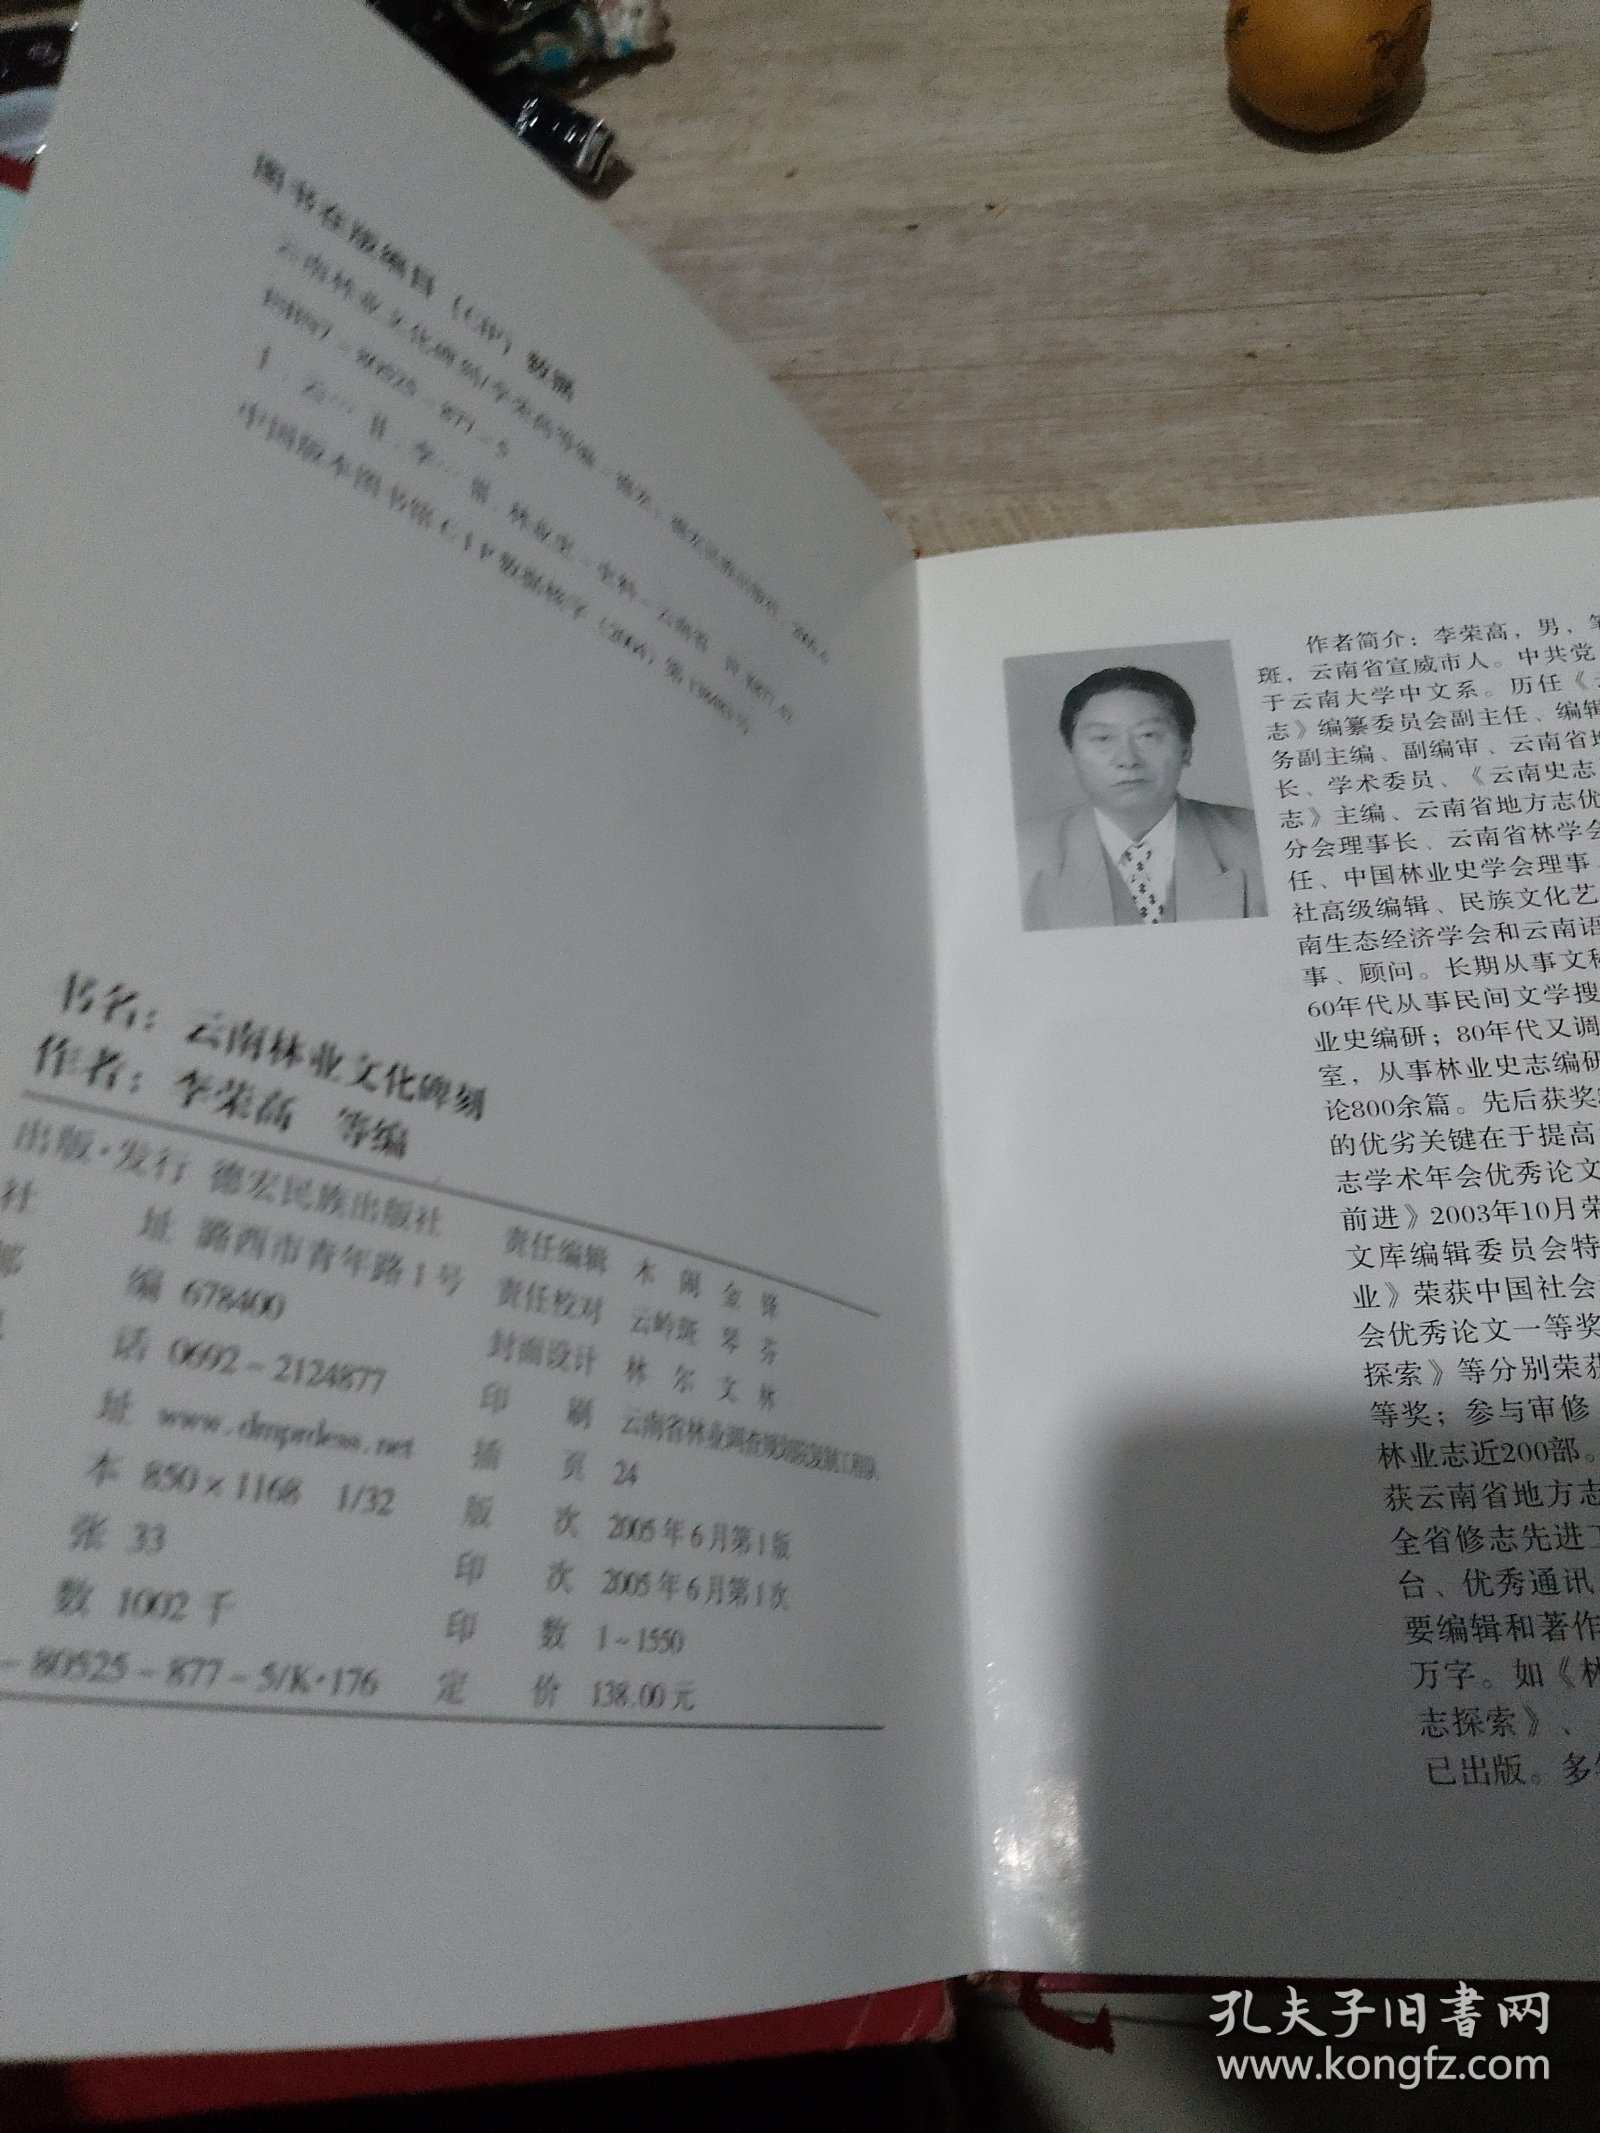 图书在版编目（CIP）数据
云南林业文化碑刻/李荣高等编
中国版本图书馆CIP数据核字
书名：云南林业文化碑刻
作者：李荣高 等编
出版·发行 德宏民族出版社 责任编辑
社 址 潞西市青年路1号 责任校对 云岭斑 琴 芬
编 678400 封面设计 林 尔 文 林
话 0692－2124877 印 刷 云南省林业调查规划院
址 插 页 24
本 850×1168 1/32 版 次 2005年6月第1版
张 33 印 次 2005年6月第1次
数 1002千 印 数 1～1550
－80525－877－5/K·176 定 价 138.00元
作者简介：李荣高，男，笔
斑，云南省宣威市人。中共党
于云南大学中文系。历任《
志》编纂委员会副主任、编辑
务副主编、副编审、云南省地
长、学术委员、《云南史志
志》主编、云南省地方志优
分会理事长、云南省林学会
任、中国林业史学会理事、
社高级编辑、民族文化艺
南生态经济学会和云南语
事、顾问。长期从事文秘
60年代从事民间文学搜
业史编研；80年代又调
室，从事林业史志编研
论800余篇。先后获奖
的优劣关键在于提高
志学术年会优秀论文
前进》2003年10月荣
文库编辑委员会特
业》荣获中国社会
会优秀论文一等奖
探索》等分别荣获
等奖；参与审修
林业志近200部。
获云南省地方志
全省修志先进工
台、优秀通讯
要编辑和著作
万字。如《林
志探索》、
已出版。多
孔夫子旧书网
www.kongfz.com